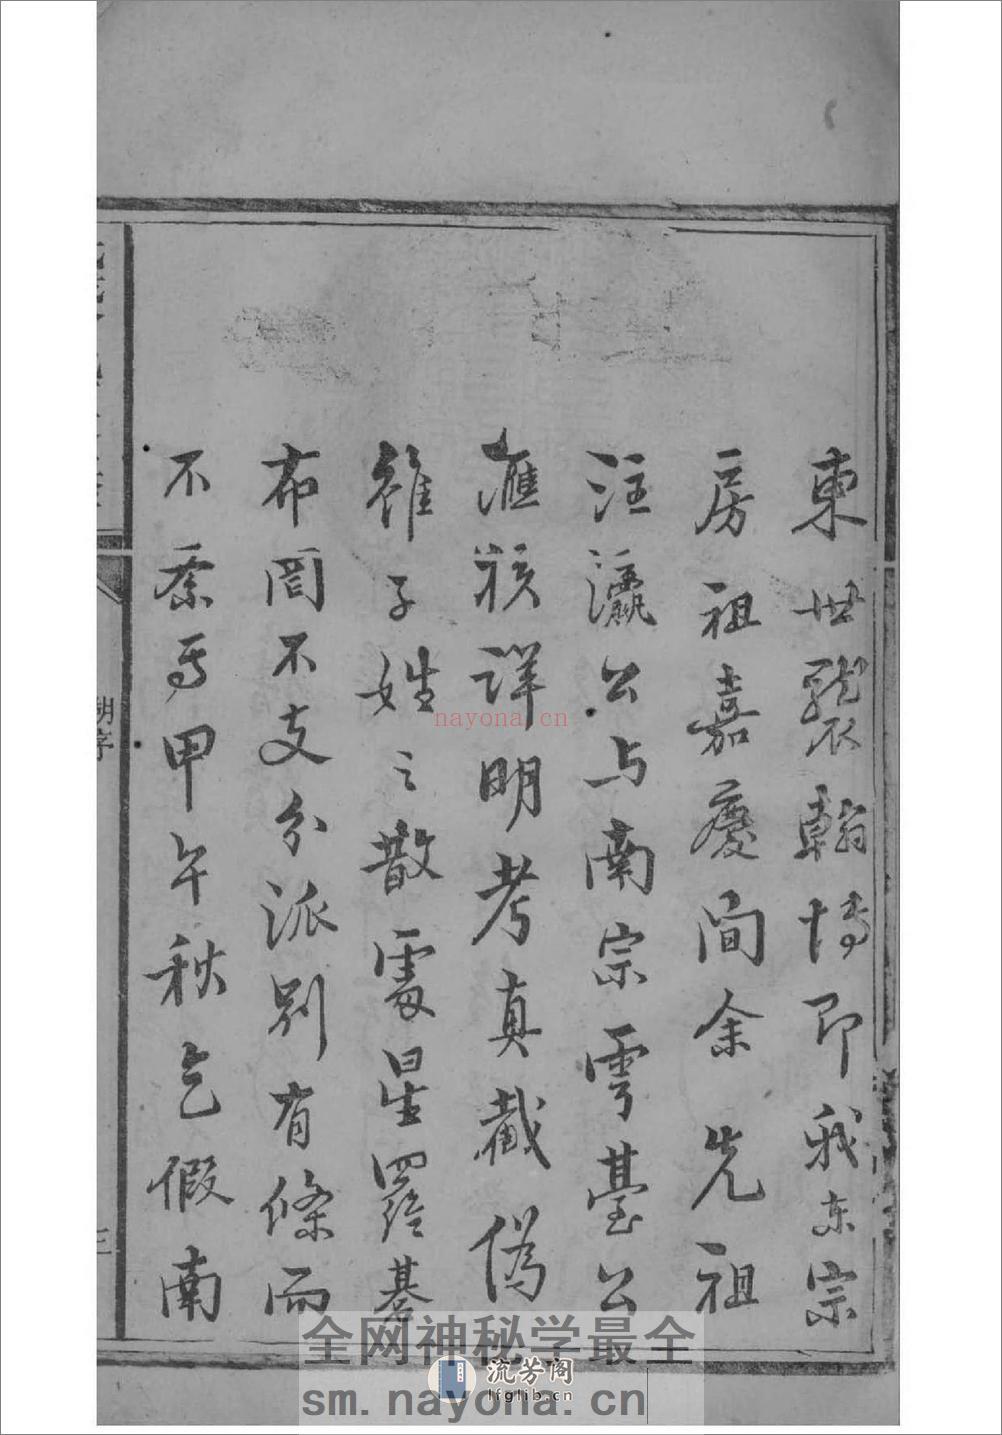 東世襲翰博即我東宗
房祖嘉慶間余先祖
注瀛公与南宗雩臺公
滙核詳明考真截偽
雖子姓之散處星羅碁
布罔不支分派別有條而
不紊焉甲午秋乞假南
胡字
三
nayona.cn
全网神秘学最全
流芳阁
lfglib.cn
sm.nayona.cn